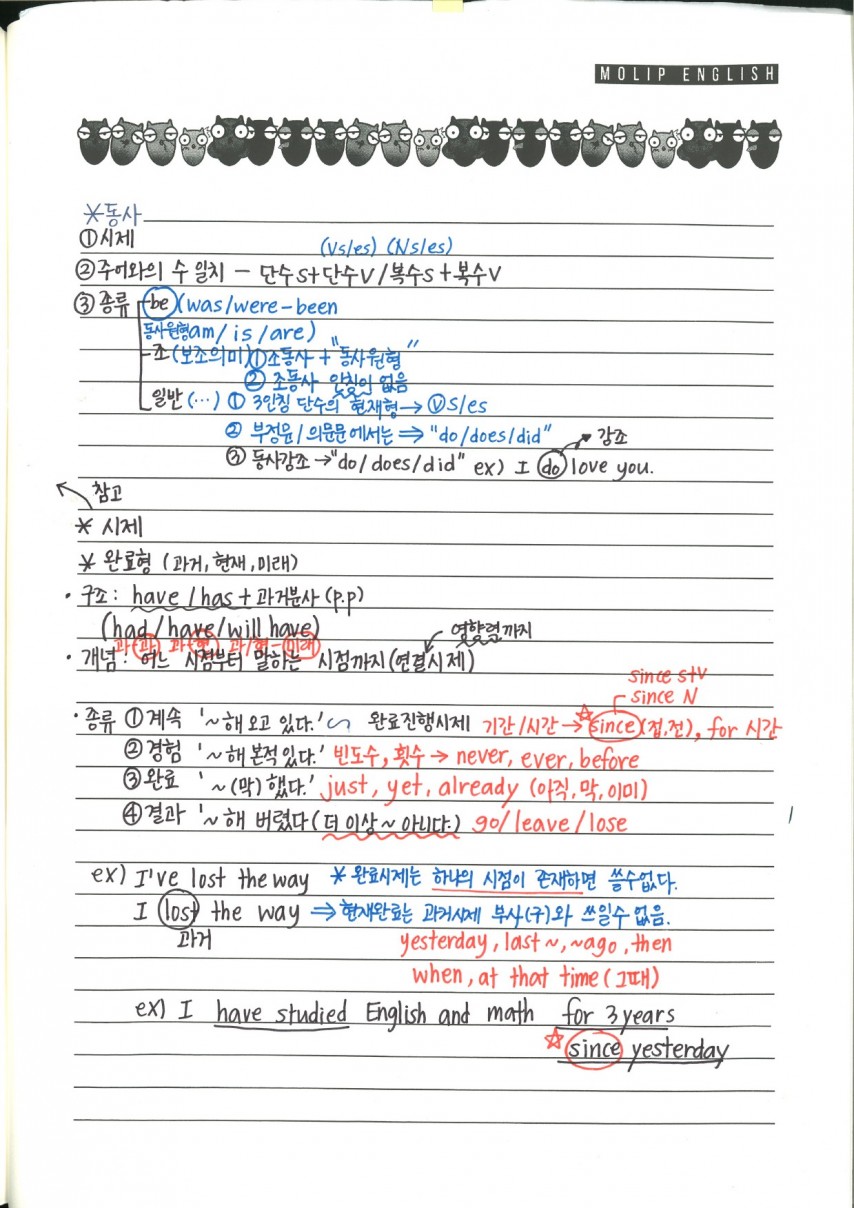 MOLIP ENGLISH
*동사
①시제
(Vs/es) (Ns/es)
②주어와의 수 일치 - 단수S+단수V/복수S+복수V
③ 종류 be (was/were-been
동사원형 am/is/are)
조 (보조의미) ①조동사 + "동사원형"
② 조동사 안칠이 없음
일반 (…) ① 3인칭 단수의 현재형→ Ⓥs/es
② 부정문/의문문에서는 ⇒ "do/does/did"
강조
③ 동사강조 →"do/does/did" ex) I do love you.
참고
* 시제
* 완료형 (과거, 현재, 미래)
· 구조: have/has + 과거분사 (p.p)
(had/have/will have)
과(과) 과(현) 과/현-미래
영향력까지
· 개념: 어느 시점부터 말하는 시점까지(연결시제)
since s+v
since N
· 종류 ①계속 '~해오고 있다.' ∽ 완료진행시제 기간/시간 → ☆since (접,전), for 시간
②경험 '~해본적있다.' 빈도수, 횟수 → never, ever, before
③완료 '~(막)했다.' just, yet, already (아직, 막, 이미)
④결과 '~해 버렸다(더 이상 ~ 아니다.) go/leave/lose
ex) I've lost the way * 완료시제는 하나의 시점이 존재하면 쓸수없다.
I lost the way ⇒ 현재완료는 과거시제 부사(구)와 쓰일수 없음.
과거
yesterday, last ~, ~ago, then
when, at that time (그때)
ex) I have studied English and math for 3 years
☆ since yesterday